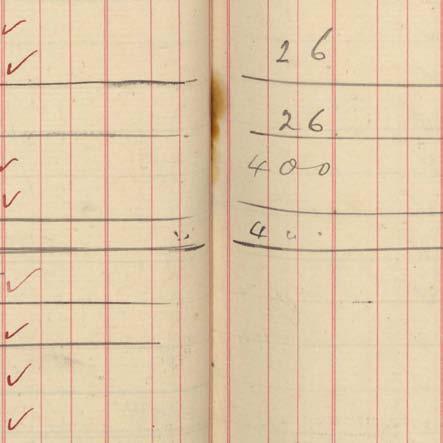 26
26
400
4 " "